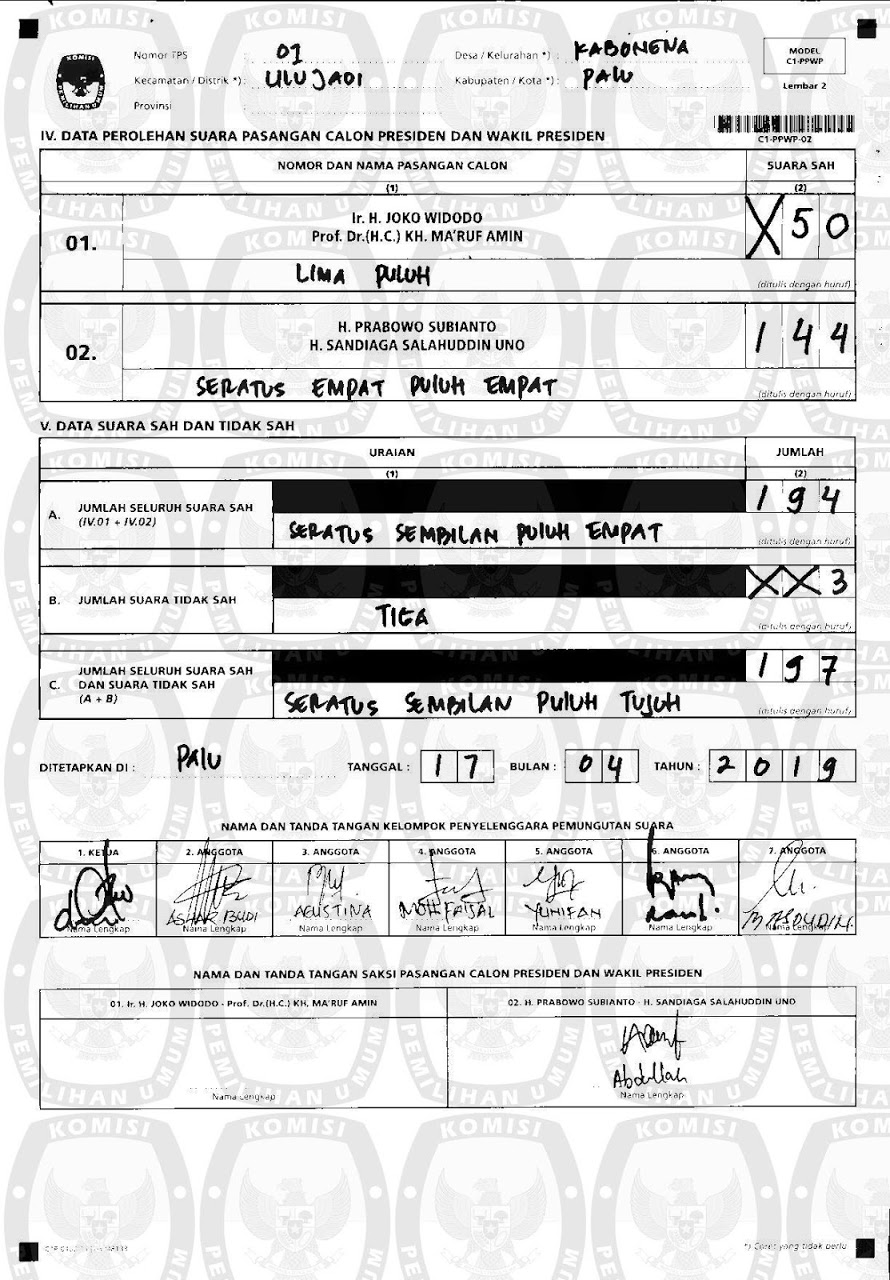 KOMISI
PEMILIHAN UMUM
Nomor TPS : 01
Desa / Kelurahan *) : KABONENA
Kecamatan / Distrik *) : ULUJADI
Kabupaten / Kota *) : PALU
Provinsi :
MODEL
C1-PPWP
Lembar 2
C1-PPWP-02
IV. DATA PEROLEHAN SUARA PASANGAN CALON PRESIDEN DAN WAKIL PRESIDEN
NOMOR DAN NAMA PASANGAN CALON
SUARA SAH
(1) (2)
01.
Ir. H. JOKO WIDODO
Prof. Dr.(H.C.) KH. MA'RUF AMIN
X 5 0
LIMA PULUH
(ditulis dengan huruf)
02.
H. PRABOWO SUBIANTO
H. SANDIAGA SALAHUDDIN UNO
1 4 4
SERATUS EMPAT PULUH EMPAT
(ditulis dengan huruf)
V. DATA SUARA SAH DAN TIDAK SAH
URAIAN JUMLAH
(1) (2)
A. JUMLAH SELURUH SUARA SAH
(IV.01 + IV.02)
1 9 4
SERATUS SEMBILAN PULUH EMPAT
(ditulis dengan huruf)
B. JUMLAH SUARA TIDAK SAH
X X 3
TIGA
(ditulis dengan huruf)
C. JUMLAH SELURUH SUARA SAH
DAN SUARA TIDAK SAH
(A + B)
1 9 7
SERATUS SEMBILAN PULUH TUJUH
(ditulis dengan huruf)
DITETAPKAN DI : PALU TANGGAL : 1 7 BULAN : 0 4 TAHUN : 2 0 1 9
NAMA DAN TANDA TANGAN KELOMPOK PENYELENGGARA PEMUNGUTAN SUARA
1. KETUA 2. ANGGOTA 3. ANGGOTA 4. ANGGOTA 5. ANGGOTA 6. ANGGOTA 7. ANGGOTA
ASHAR BUDI AGUSTINA MOH FAISAL
Nama Lengkap Nama Lengkap Nama Lengkap Nama Lengkap Nama Lengkap Nama Lengkap Nama Lengkap
NAMA DAN TANDA TANGAN SAKSI PASANGAN CALON PRESIDEN DAN WAKIL PRESIDEN
01. Ir. H. JOKO WIDODO - Prof. Dr.(H.C.) KH. MA'RUF AMIN
02. H. PRABOWO SUBIANTO - H. SANDIAGA SALAHUDDIN UNO
Abdullah
Nama Lengkap Nama Lengkap
*) Coret yang tidak perlu